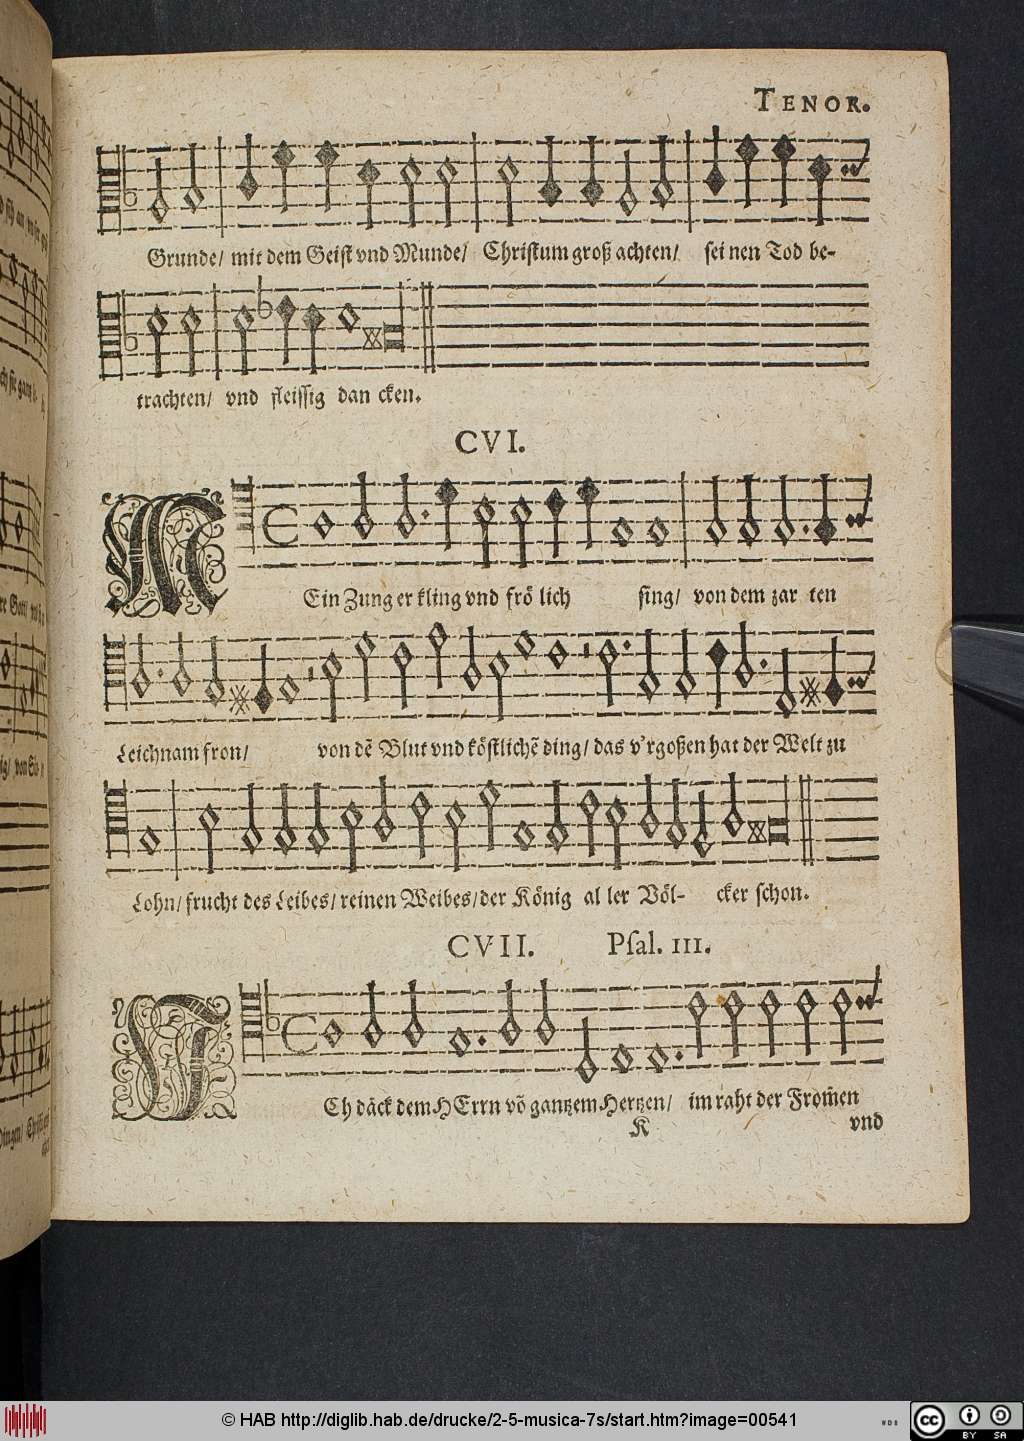 TENOR.
Grunde/ mit dem Geist vnd Munde/ Christum groß achten/ sei nen Tod be-
trachten/ vnd fleissig dan cken.
CVI.
MEin Zung er kling vnd frö lich sing/ von dem zar ten
Leichnam fron/ von dẽ Blut vnd köstlichẽ ding/ das v'rgoßen hat der Welt zu
Lohn/ frucht des Leibes/ reinen Weibes/ der König al ler Völ- cker schon.
CVII. Psal. III.
ICh däck dem HErrn võ gantzem Hertzen/ im raht der From̃en
K vnd
© HAB http://diglib.hab.de/drucke/2-5-musica-7s/start.htm?image=00541
WDB
cc BY SA